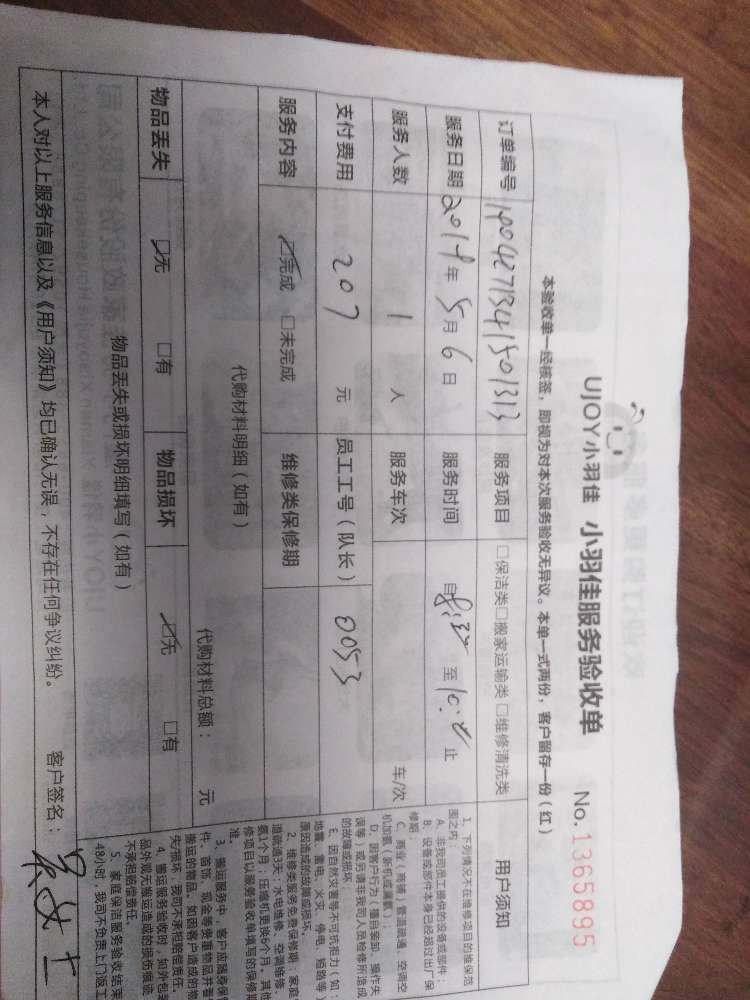 UJOY小羽佳 小羽佳服务验收单 No. 1365895
本验收单一经核签，即视为对本次服务验收无异议。本单一式两份，客户留存一份（红）
订单编号 服务项目 □保洁类□搬家运输类□维修清洗类
服务日期 2019年5月6日 服务时间 自 至 止
服务人数 1 人 服务车次 车/次
支付费用 207 元 员工工号（队长） 0053
服务内容 ☑完成 □未完成 维修类保修期
代购材料明细（如有）
代购材料总额： 元
物品丢失 ☑无 □有 物品损坏 ☑无 □有
物品丢失或损坏明细填写（如有）
本人对以上服务信息以及《用户须知》均已确认无误，不存在任何争议纠纷。 客户签名：
用户须知
1、下列情况不在维修项目的维保范
围之内：
A、非我司员工提供的设备或部件；
B、设备或部件本身已经超过出厂保
修期；
C、商业（商铺）管道疏通，空调空
机加氨（新机或漏氨）；
D、因客户行为（擅自装卸、操作失
误等）或另请非我司人员检修所造成
的故障或损坏；
E、因自然灾害等不可抗拒力（如：
地震、雷电、火灾、停电、短路等）
原因造成的故障或损坏。
2、维修类服务免费保修期：家庭
道疏通3天；水电维修、空调维修、
氨1个月；压缩机更换6个月，其他
修项目以服务验收单填写的保修期
准。
3、搬运服务中，客户应随身保
件、首饰、现金等贵重物品并看
搬运的物品。如因客户造成的物
失/损坏，我司不承担赔偿责任。
4、搬运服务验收时，如外包装
品外观无搬运造成的损伤痕迹
不承担赔偿责任。
5、家庭保洁服务验收结束
48小时，我司不负责上门返工